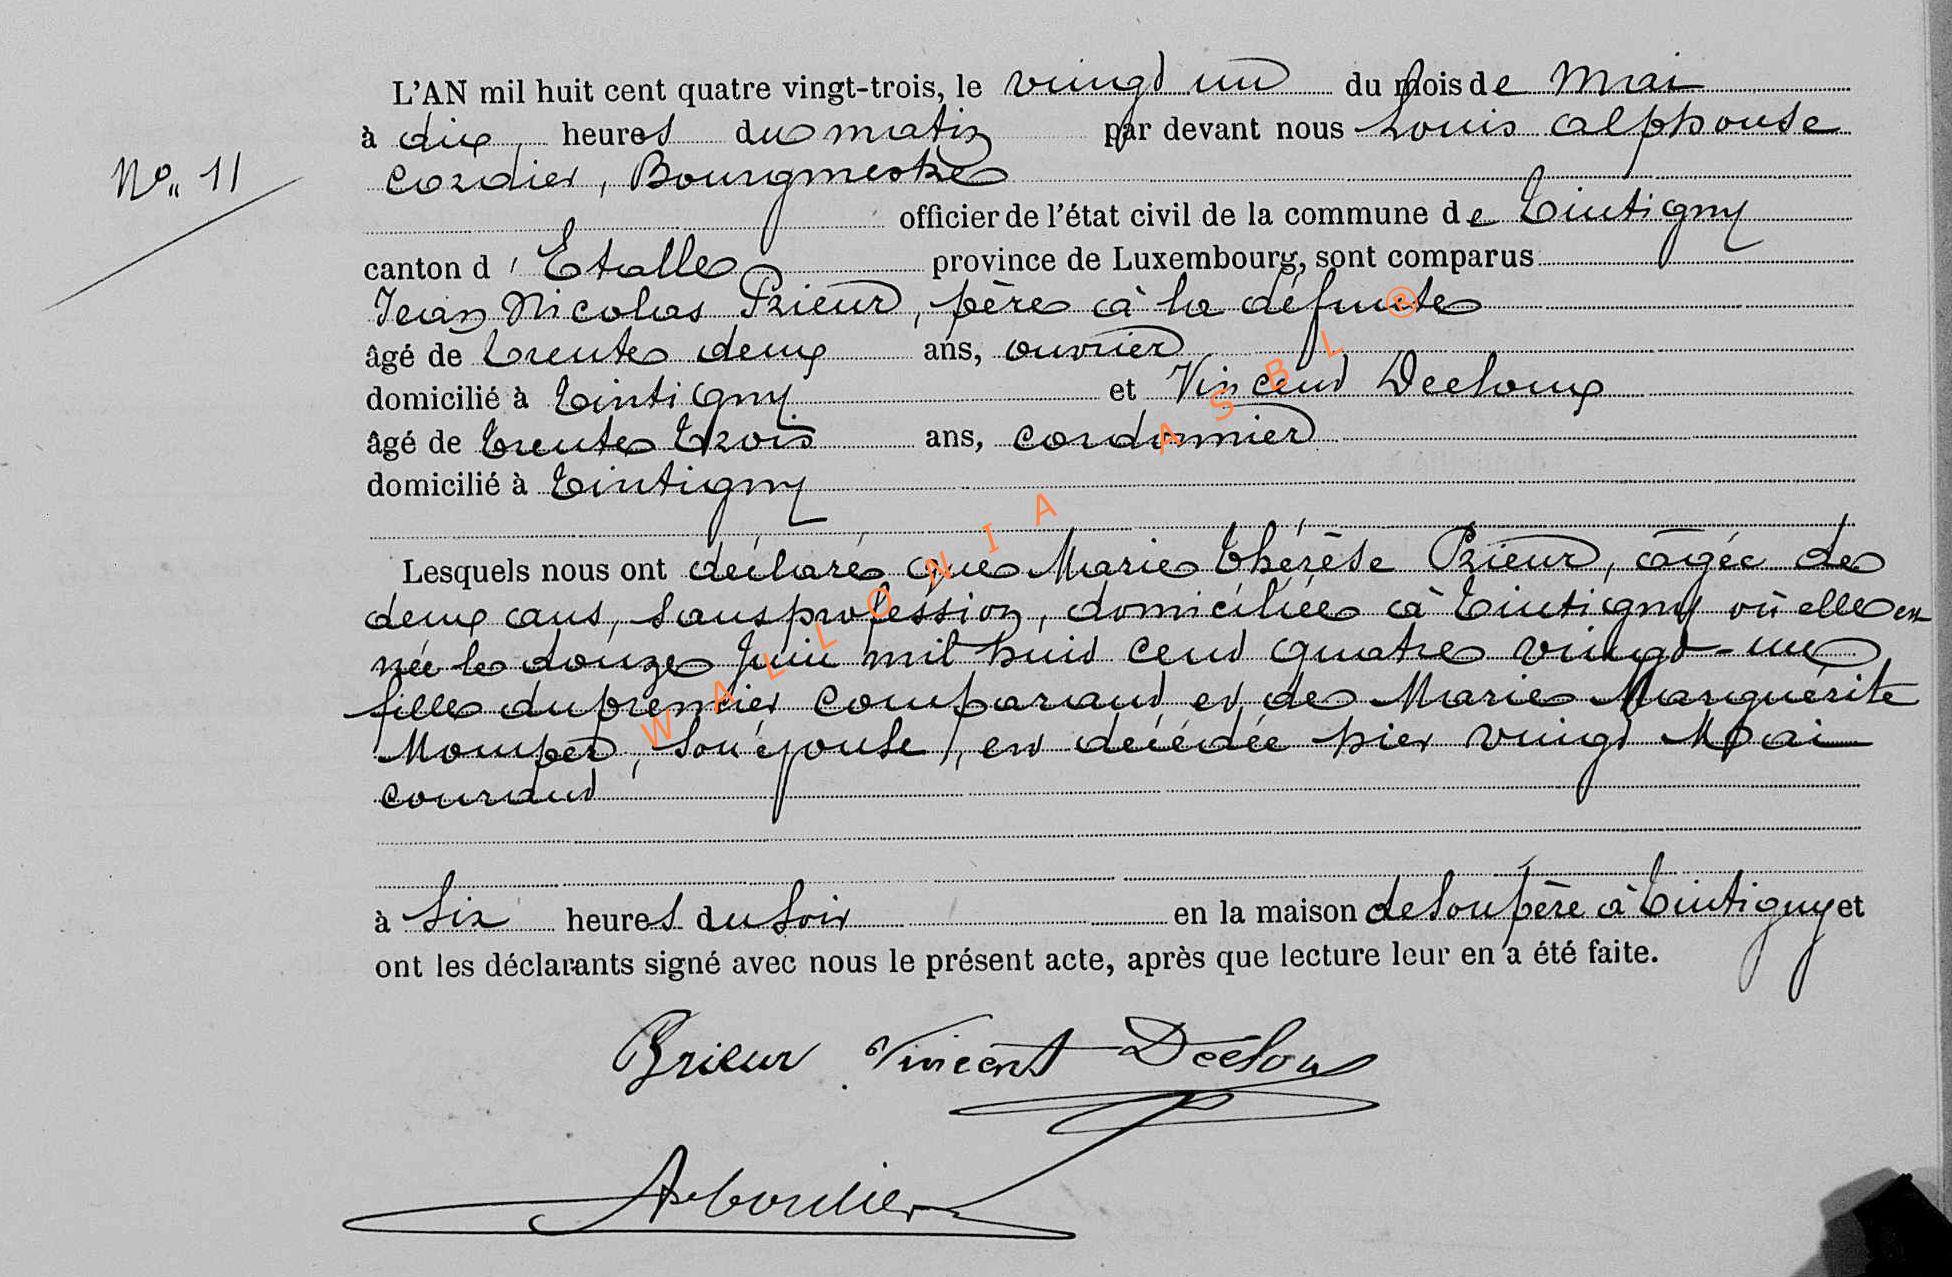 L'AN mil huit cent quatre vingt-trois, le vingt un du mois de Mai
à dix heures du matin par devant nous Louis Alphonse
N° 11
Cordier, Bourgmestre
officier de l'état civil de la commune de Tintigny
canton d'Etalle province de Luxembourg, sont comparus
Jean Nicolas Prieur, père à la défunte
âgé de trente deux ans, ouvrier
domicilié à Tintigny et Vincent Decloux
âgé de trente trois ans, cordonnier
domicilié à Tintigny
Lesquels nous ont déclaré que Marie Thérèse Prieur, âgée de
deux ans, sans profession, domiciliée à Tintigny où elle est
née le douze Juin mil huit cent quatre vingt-un
fille du premier comparant et de Marie Marguérite
Momper, son épouse, est décédée hier vingt Mai
courant
à six heures du soir en la maison de son père à Tintigny et
ont les déclarants signé avec nous le présent acte, après que lecture leur en a été faite.
Prieur Vincent Decloux
Cordier
WALLONIA ASBL ®